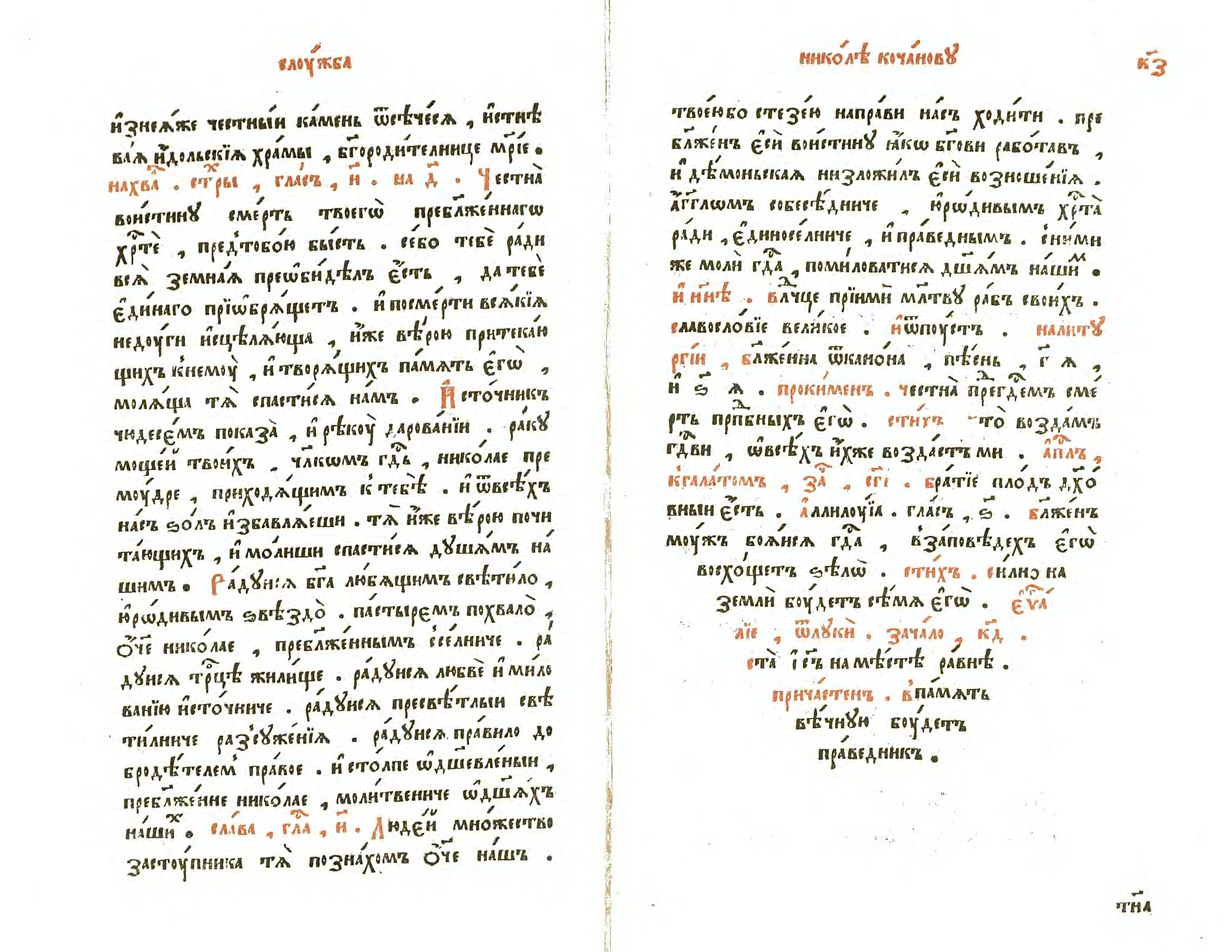 слꙋ́жба
и҆знеѧ́же честныи ка́мень ѿсѣ́чесѧ , и҆стнѣ
ваѧ и҆́дольскїѧ хра́мы , бг҃ороди́телнице мр҃і́е .
нахва̑ . стⷯры , гла́съ , и҃ . на д҃ . Честна̀
вои́стинꙋ сме́рть твоегѡ̀ пребл҃же́ннагѡ
хрⷭ҇тѐ , предтобо́ю бы́сть . се́бо тебѐ ра́ди
всѧ̀ земна́ѧ преѡби́дѣлъ є҆́сть , да тебѐ
є҆ди́наго прїѡбрѧ́щетъ . и҆ посме́рти всѧ́кїѧ
недоу́ги и҆сцѣлѧ́юща , и҆́же вѣ́рою притека́ю
щихъ кнемоу̀ , и҆ творѧ́щихъ па́мѧть є҆гѡ̀ ,
молѧ́ща тѧ̀ спасти́сѧ на́мъ . И҆сто́чникъ
чюдесе́мъ показа̀ , и҆ рѣкоу̀ дарова́нїи . ра́кꙋ
моще́й твои́хъ , чл҃кѡмъ гдⷭ҇ь , нико́лае пре
моу́дре , приходѧ́щимъ к тебѣ̀ . и҆ ѿвсѣ́хъ
на́съ ѕо́лъ и҆збавлѧ́еши . тѧ̀ и҆́же вѣ́рою почи
та́ющихъ , и҆ мо́лиши спасти́сѧ дꙋша́мъ на́
шимъ . Ра́дꙋисѧ бг҃а лю́бѧщимъ свѣти́ло ,
ю҆рѡ́дивымъ ѕвѣздо̀ . па́стыремъ похвало̀ ,
о҆́ч҃е нико́лае , пребл҃же́ннымъ ссе́лниче . ра́
дꙋисѧ трⷪ҇цѣ жили́ще . ра́дꙋисѧ любвѐ и҆ мило
ванїю и҆сто́чниче . ра́дꙋисѧ пресвѣ́тлыи свѣ
ти́лниче разсꙋже́нїѧ . ра́дꙋисѧ пра́вило до
бродѣ́телем пра́вое . и҆ сто́лпе ѡ҆дш҃евле́ныи ,
пребл҃же́нне нико́лае , моли́твениче ѡ҆ дш҃а́хъ
на́шиⷯ . сла́ва , гла̑ , и҃ . Люде́й мно́жество
застоу́пника тѧ̀ позна́хомъ о҆́ч҃е на́шъ .
нико́лѣ коча́новꙋ
к҃з
твое́юбо стезе́ю напра́ви на́съ ходи́ти . пре
бл҃же́нъ є҆сѝ вои́стинꙋ ꙗ҆́кѡ бг҃ови рабо́тавъ ,
и҆ де́моньскаѧ низложи́лъ є҆сѝ возноше́нїѧ .
а҆́гг҃лѡмъ собесѣ́дниче , ю҆рѡ́дивымъ хрⷭ҇та̀
ра́ди , є҆диносе́лниче , и҆ пра́веднымъ . сни́ми
же молѝ гдⷭ҇а , поми́ловатисѧ дш҃а́мъ на́шиⷨ .
и҆ нн҃ѣ . влⷣчце прїимѝ мл҃твꙋ ра́бъ свои́хъ .
славосло́вїе вели́кое . и҆ѿпоу́стъ . налитꙋ
ргі́и , бл҃же́нна ѿкано́на , пѣ́снь , г҃ ѧ ,
и҆ ѕ҃ ѧ . проки́менъ . честна̀ предгⷭ҇демъ сме́
рть прпⷣбныхъ є҆гѡ̀ . сти́хъ что̀ возда́мъ
гдⷭ҇ви , ѡ҆всѣ́хъ и҆́хже возда́стъ ми . а҆пⷭ҇лъ ,
кгала́томъ , за̑ , сг҃і . бра́тїе пло́дъ дх҃о́
вныи є҆́сть . а҆ллилоу́їа . гла́съ , ѕ҃ . бл҃же́нъ
моу́жъ боѧ́исѧ гдⷭ҇а , взаповѣ́дехъ є҆гѡ̀
восхо́щетъ ѕѣлѡ̀ . сти́хъ . си́лно на
землѝ боу́детъ сѣ́мѧ є҆гѡ̀ . є҆ѵⷢ҇а́
лїе , ѿлꙋкѝ . зача́ло , кд҃ .
ста̀ і҆с҃ъ на мѣ́стѣ ра́внѣ .
прича́стенъ . впа́мѧть
вѣ́чнꙋю боу́детъ
пра́ведникъ .